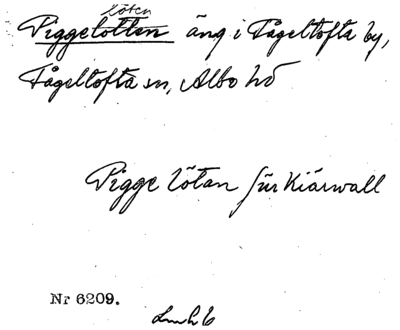 löten
Piggelotten äng i Fågeltofta by,
Fågeltofta sn, Albo hd
Pigge lötan für Kiärwall
Nr 6209.